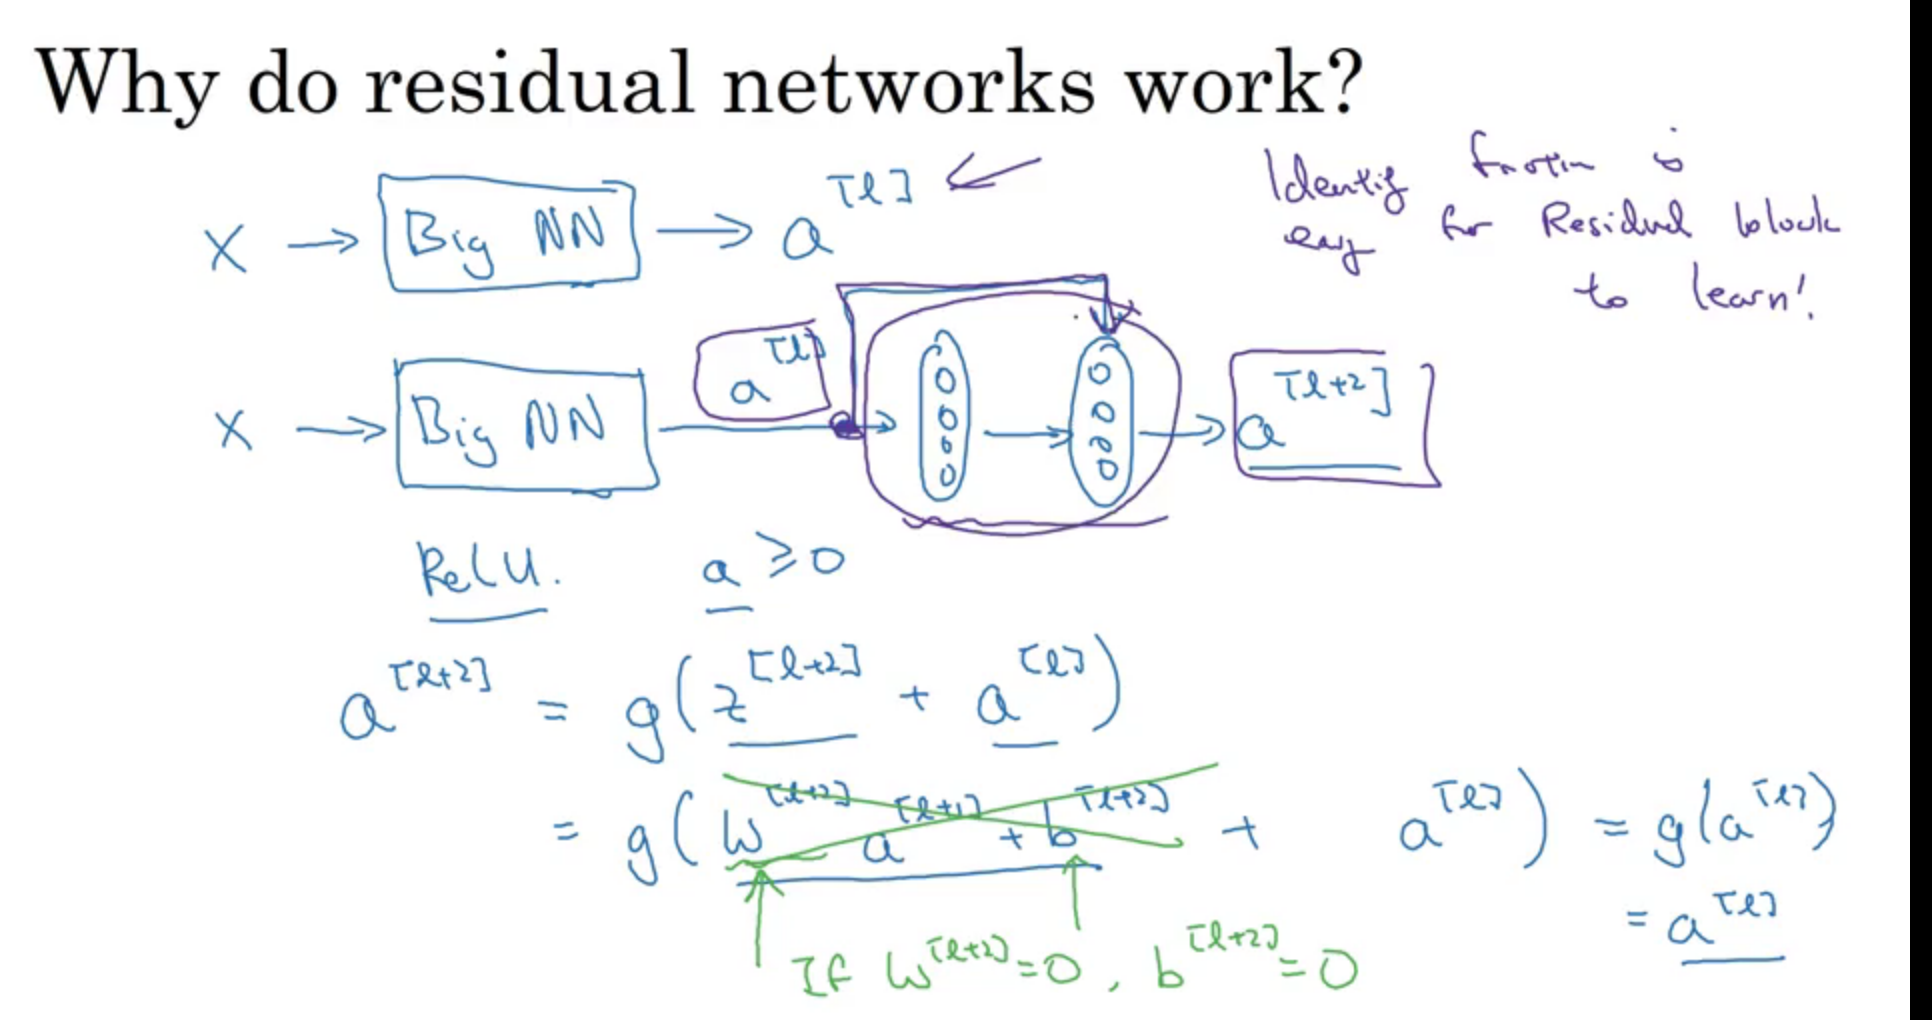 Why do residual networks work?
X → Big NN → a^[l]
Identity function is
easy for Residual block
to learn!
X → Big NN a^[l] → → a^[l+2]
ReLU. a ≥ 0
a^[l+2] = g(z^[l+2] + a^[l])
= g(W^[l+2] a^[l+1] + b^[l+2] + a^[l]) = g(a^[l])
= a^[l]
If W^[l+2] = 0, b^[l+2] = 0